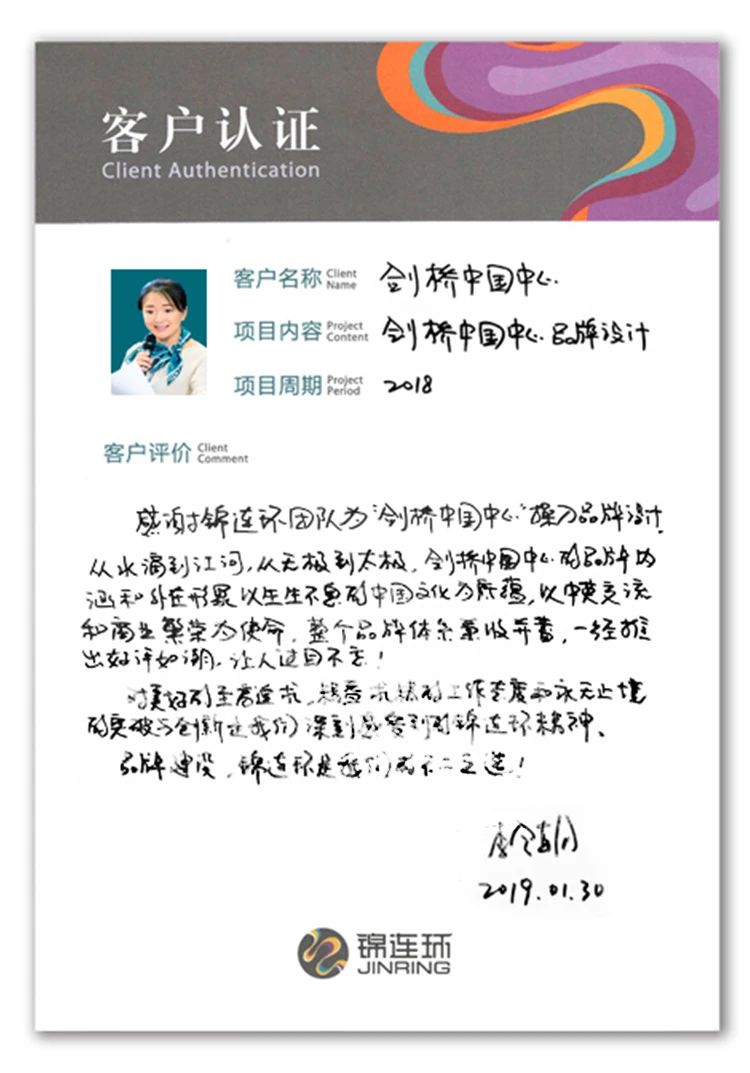 客户认证
Client Authentication
客户名称 Client Name 剑桥中国中心
项目内容 Project Content 剑桥中国中心品牌设计
项目周期 Project Period 2018
客户评价 Client Comment
感谢锦连环团队为“剑桥中国中心”操刀品牌设计
从水滴到江河，从无极到太极，剑桥中国中心的品牌内
涵和外在形象以生生不息的中国文化为底蕴，以中英交流
和商业繁荣为使命，整个品牌体系兼收并蓄，一经推
出好评如潮，让人过目不忘！
对美好的至高追求，的工作态度和永无止境
的突破与创新是我们深刻感受到的锦连环精神。
品牌建设，锦连环是我们的不二之选！
2019.01.30
锦连环
JINRING